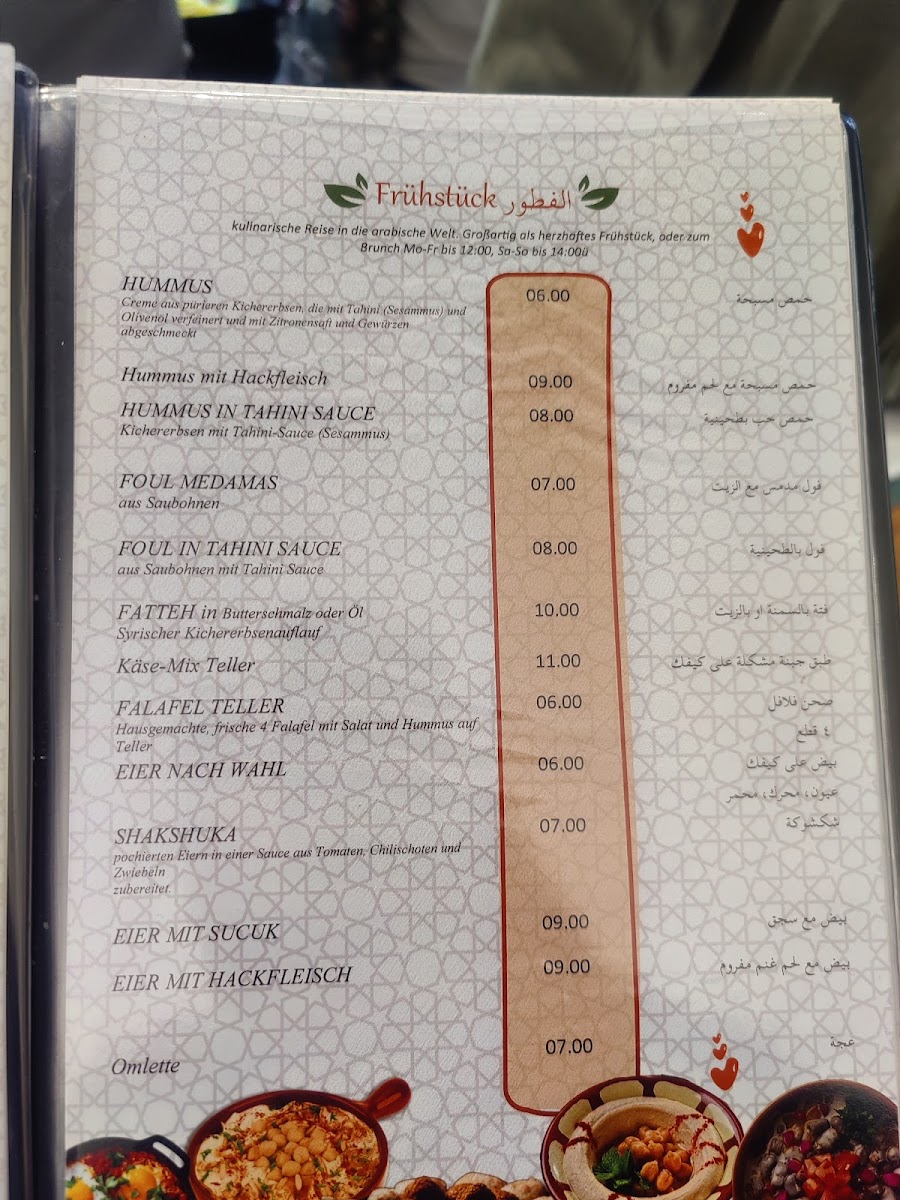 Frühstück الفطور
kulinarische Reise in die arabische Welt. Großartig als herzhaftes Frühstück, oder zum
Brunch Mo-Fr bis 12:00, Sa-So bis 14:00ü
HUMMUS 06.00 حمص مسبحة
Creme aus pürieren Kichererbsen, die mit Tahini (Sesammus) und
Olivenöl verfeinert und mit Zitronensaft und Gewürzen
abgeschmeckt
Hummus mit Hackfleisch 09.00 حمص مسبحة مع لحم مفروم
HUMMUS IN TAHINI SAUCE 08.00 حمص حب بطحينية
Kichererbsen mit Tahini-Sauce (Sesammus)
FOUL MEDAMAS 07.00 فول مدمس مع الزيت
aus Saubohnen
FOUL IN TAHINI SAUCE 08.00 فول بالطحينية
aus Saubohnen mit Tahini Sauce
FATTEH in Butterschmalz oder Öl 10.00 فتة بالسمنة او بالزيت
Syrischer Kichererbsenauflauf
Käse-Mix Teller 11.00 طبق جبنة مشكلة على كيفك
FALAFEL TELLER 06.00 صحن فلافل
Hausgemachte, frische 4 Falafel mit Salat und Hummus auf
Teller ٤ قطع
EIER NACH WAHL 06.00 بيض على كيفك
عيون، محرك، محمر
SHAKSHUKA 07.00 شكشوكة
pochierten Eiern in einer Sauce aus Tomaten, Chilischoten und
Zwiebeln
zubereitet.
EIER MIT SUCUK 09.00 بيض مع سجق
EIER MIT HACKFLEISCH 09.00 بيض مع لحم غنم مفروم
Omlette 07.00 عجة